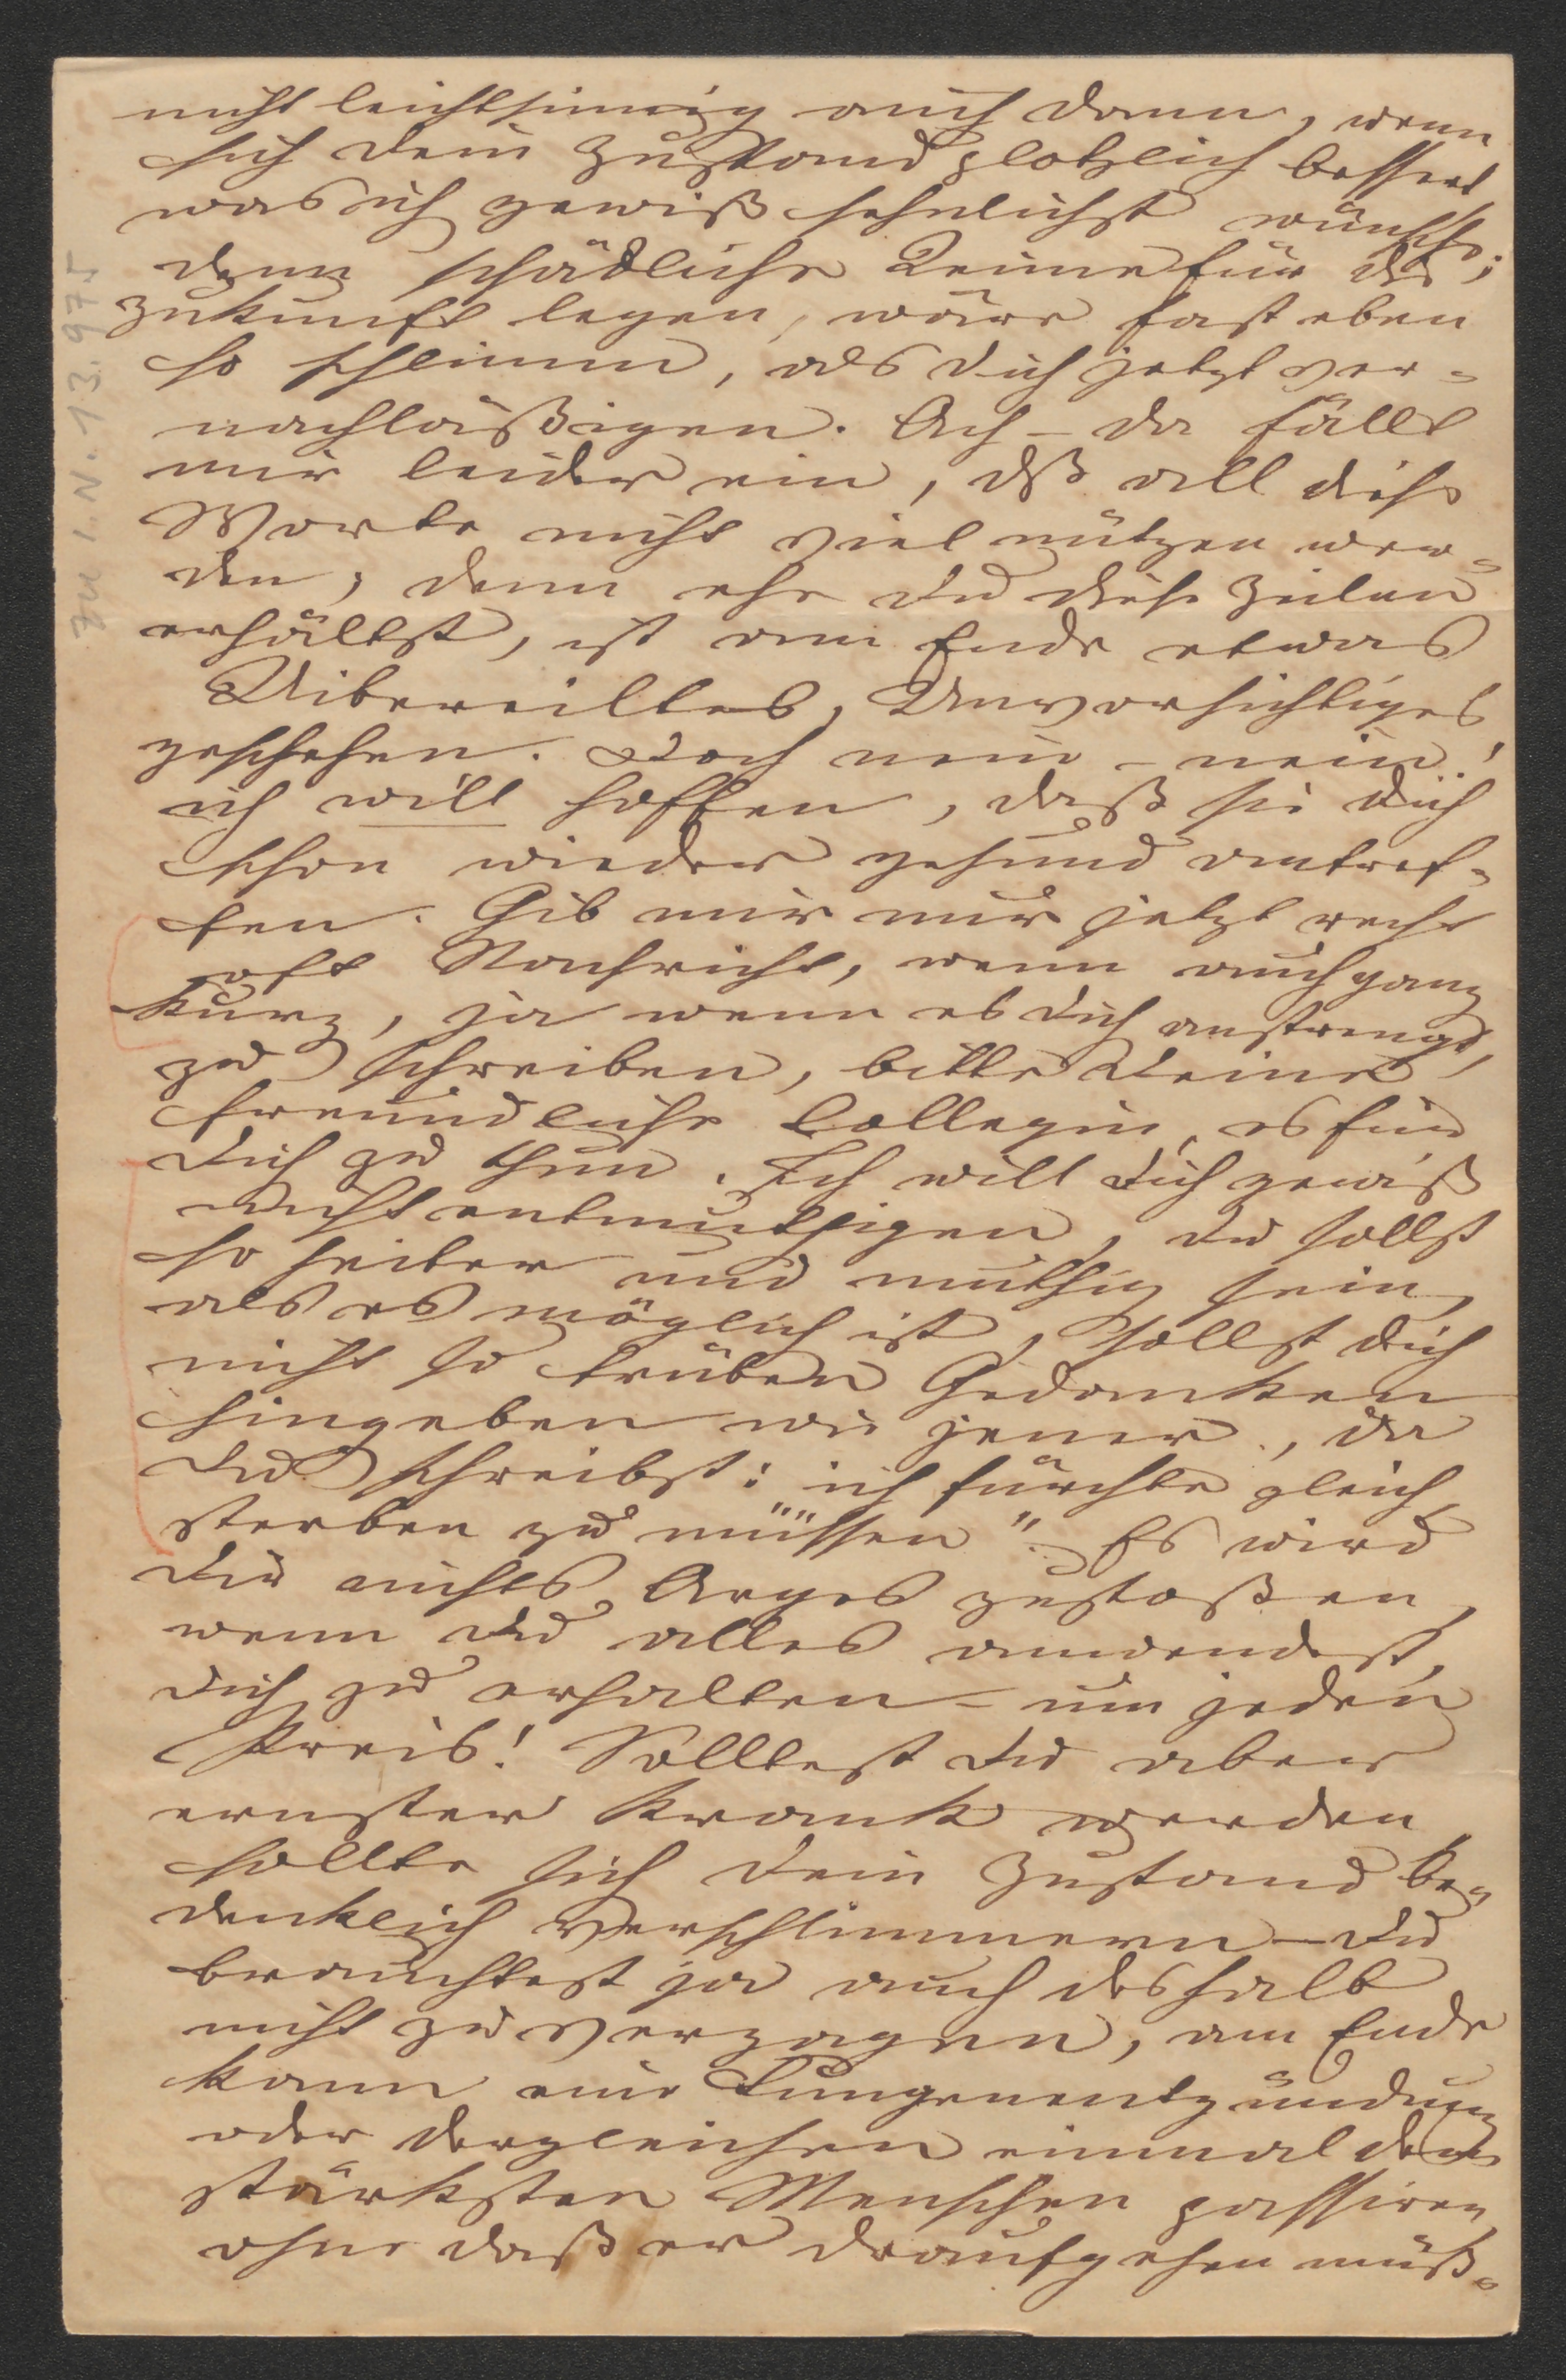 nicht leichtsinnig auch dann, wenn
sich Dein Zustand plötzlich bessert
was ich gewiß sehnlichst wünsche;
denn schädliche Keime für die
Zukunft legen, wäre fast eben
so schlimm, als Dich jetzt ver-
nachläßigen. Ach – da fällt
mir leider ein, dß all diese
Worte nicht viel nützen wer-
den, denn ehe Du diese Zeilen
erhältst, ist am Ende etwas
Uibereiltes, Unvorsichtiges
geschehen. Doch nein – nein!
ich will hoffen, daß sie Dich
schon wieder gesund antref-
fen. Gib mir nur jetzt recht
oft Nachricht, wenn auch ganz
kurz, ja wenn es Dich anstrengt,
zu schreiben, bitte Deine
freundliche Collegin, es für
Dich zu thun. Ich will Dich gewiß
nicht entmuthigen, Du sollst
so heiter und muthig sein,
als es möglich ist, sollst Dich
nicht so trüben Gedanken
hingeben wie jener, da
Du schreibst: ich fürchte gleich
sterben zu müssen". Es wird
Dir nichts Arges zustoßen,
wenn Du alles anwendest,
Dich zu erhalten – um jeden
Preis! Solltest Du aber
ernster krank werden
sollte sich Dein Zustand be-
denklich verschlimmern – Du
brauchtest ja auch deshalb
nicht zu verzagen, am Ende
kann eine Lungenentzündung
oder dergleichen einmal dem
stärksten Menschen passiren,
ohne daß er draufgehen müß-
Zu I.N. 13.975